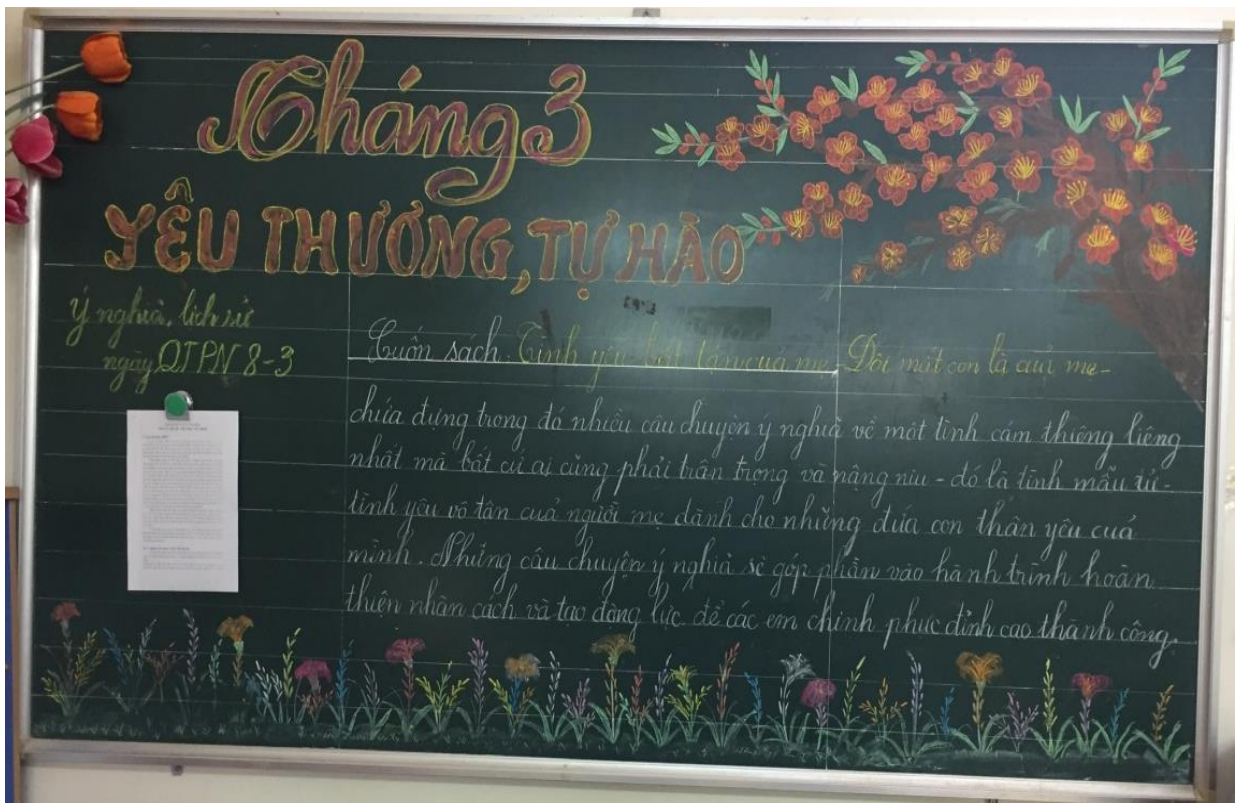 Tháng 3
YÊU THƯƠNG, TỰ HÀO
Ý nghĩa, lịch sử
ngày QTPN 8-3
Cuốn sách Tình yêu bất tận của mẹ - Đôi mắt con là của mẹ -
chứa đựng trong đó nhiều câu chuyện ý nghĩa về một tình cảm thiêng liêng
nhất mà bất cứ ai cũng phải trân trọng và nâng niu - đó là tình mẫu tử -
tình yêu vô tận của người mẹ dành cho những đứa con thân yêu của
mình. Những câu chuyện ý nghĩa sẽ góp phần vào hành trình hoàn
thiện nhân cách và tạo động lực để các em chinh phục đỉnh cao thành công.